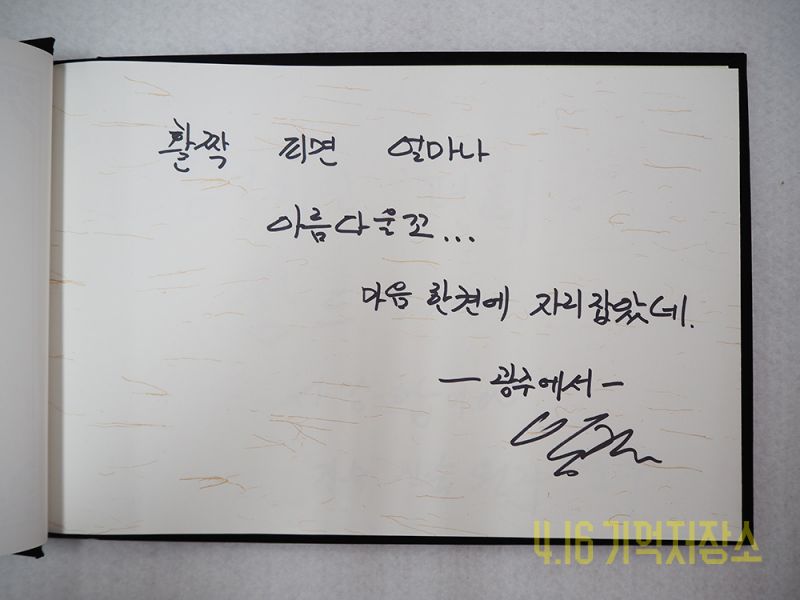 활짝 피면 얼마나
아름다울꼬...
마음 한켠에 자리잡았네.
- 광주에서 -
4.16 기억저장소